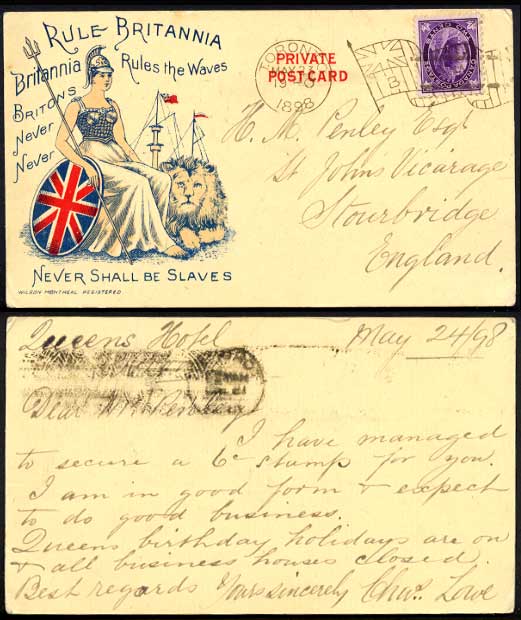 RULE BRITANNIA
Britannia Rules the Waves
BRITONS
Never
Never
NEVER SHALL BE SLAVES
WILSON MONTREAL REGISTERED
PRIVATE
POST CARD
TORONTO
MAY 23
1898
H. M. Penley Esqr
St Johns Vicarage
Stourbridge
England.
Queens Hotel May 24/98
Dear Mr Penley
I have managed
to secure a 6c stamp for you.
I am in good form & expect
to do good business.
Queens birthday holidays are on
& all business houses closed.
Best regards Yours sincerely Chas. Lowe